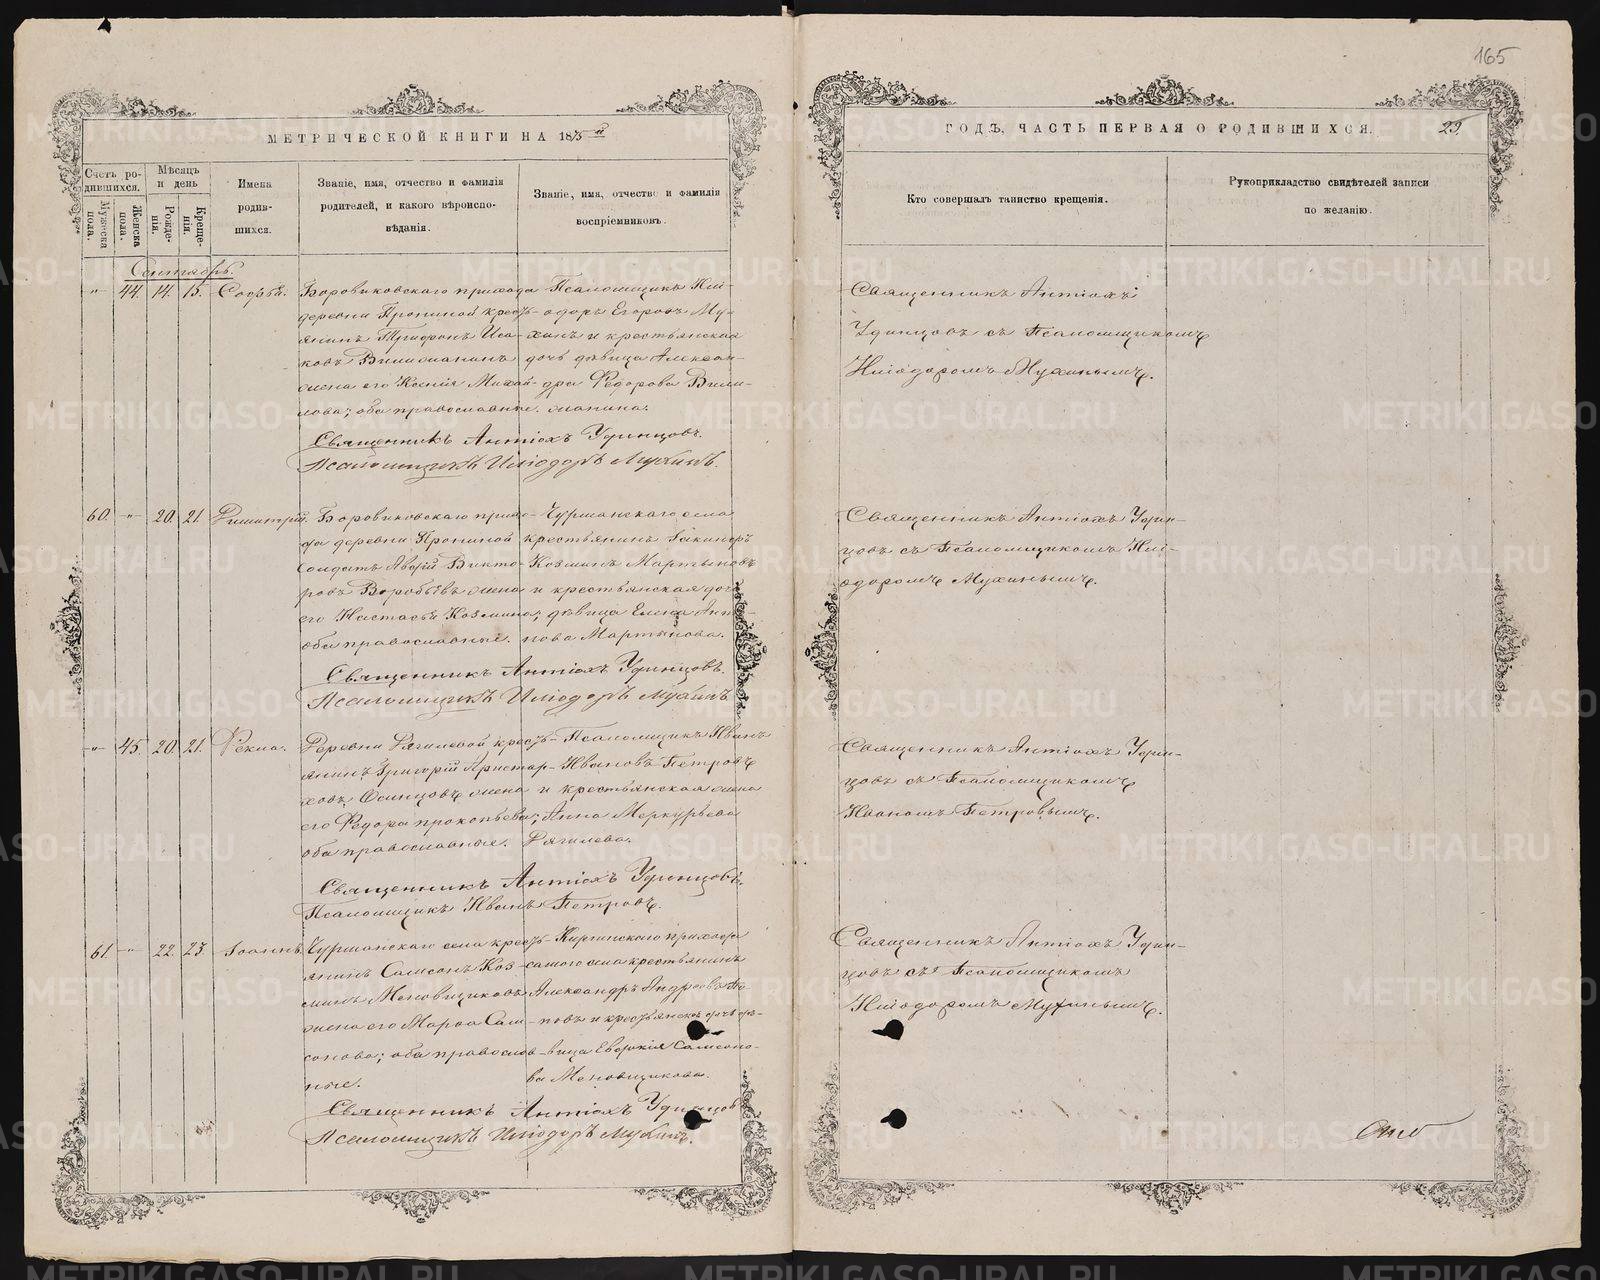 165
МЕТРИЧЕСКОЙ КНИГИ НА 1875 й
ГОДЪ, ЧАСТЬ ПЕРВАЯ О РОДИВШИХСЯ.
29.
Счетъ ро-
дившихся.
Мужеска пола.
Женска пола.
Мѣсяцъ и день
Рожде-
нія.
Креще-
нія.
Имена
родив-
шихся.
Званіе, имя, отчество и фамилія
родителей, и какого вѣроиспо-
вѣданія.
Званіе, имя, отчество и фамилія
воспріемниковъ.
Кто совершалъ таинство крещенія.
Рукоприкладство свидѣтелей записи
по желанію.
Сентябрь.
-"- 44. 14. 15. Софья.
Боровиковскаго прихода
деревни Прониной кресть-
янинъ Трифонъ Иса-
ковъ Вилисианинъ
жена его Ксенія Михай-
лова; оба православные.
Псаломщикъ Илі-
одоръ Егоровъ Му-
хинъ и крестьянская
дочь дѣвица Алексан-
дра Федорова
Священникъ Антіохъ Удинцовъ.
Псаломщикъ Иліодоръ Мухинъ.
Священникъ Антіохъ
Удинцовъ съ Псаломщикомъ
Иліодоромъ Мухинымъ.
60. -"- 20. 21. Димитрій.
Боровиковскаго прихо-
да деревни Прониной
Солдатъ Авдій Викто-
ровъ Воробьевъ жена
его Настасья Козмина;
оба православные.
Чурманскаго села
крестьянинъ Іакинфъ
Козминъ Мартыновъ
и крестьянская дочь
дѣвица Елена Анти-
пова Мартынова.
Священникъ Антіохъ Удинцовъ.
Псаломщикъ Иліодоръ Мухинъ.
Священникъ Антіохъ Удин-
цовъ съ Псаломщикомъ Илі-
одоромъ Мухинымъ.
-"- 45. 20. 21. Фекла.
Деревни Дягилевой кресть-
янинъ Григорій Аристар-
ховъ Осинцовъ жена
его Федора Прокопьева;
оба православные.
Псаломщикъ Иванъ
Ивановъ Петровъ
и крестьянская жена
Анна Меркурьева
Дягилева.
Священникъ Антіохъ Удинцовъ.
Псаломщикъ Иванъ Петровъ.
Священникъ Антіохъ Удин-
цовъ съ Псаломщикомъ
Иваномъ Петровымъ.
61. -"- 22. 23. Іоаннъ.
Чурманскаго села кресть-
янинъ Самсонъ Коз-
минъ Меновщиковъ
жена его Марфа Сам-
сонова; оба православ-
ные.
Киргинскаго прихода
самого села крестьянинъ
Александръ Андреевъ По-
повъ и крестьянск дочь дѣ-
вица Евдокія Самсоно-
ва Меновщикова.
Священникъ Антіохъ Удинцовъ
Псаломщикъ Иліодоръ Мухинъ.
Священникъ Антіохъ Удин-
цовъ съ Псаломщикомъ
Иліодоромъ Мухинымъ.
METRIKI.GASO-URAL.RU